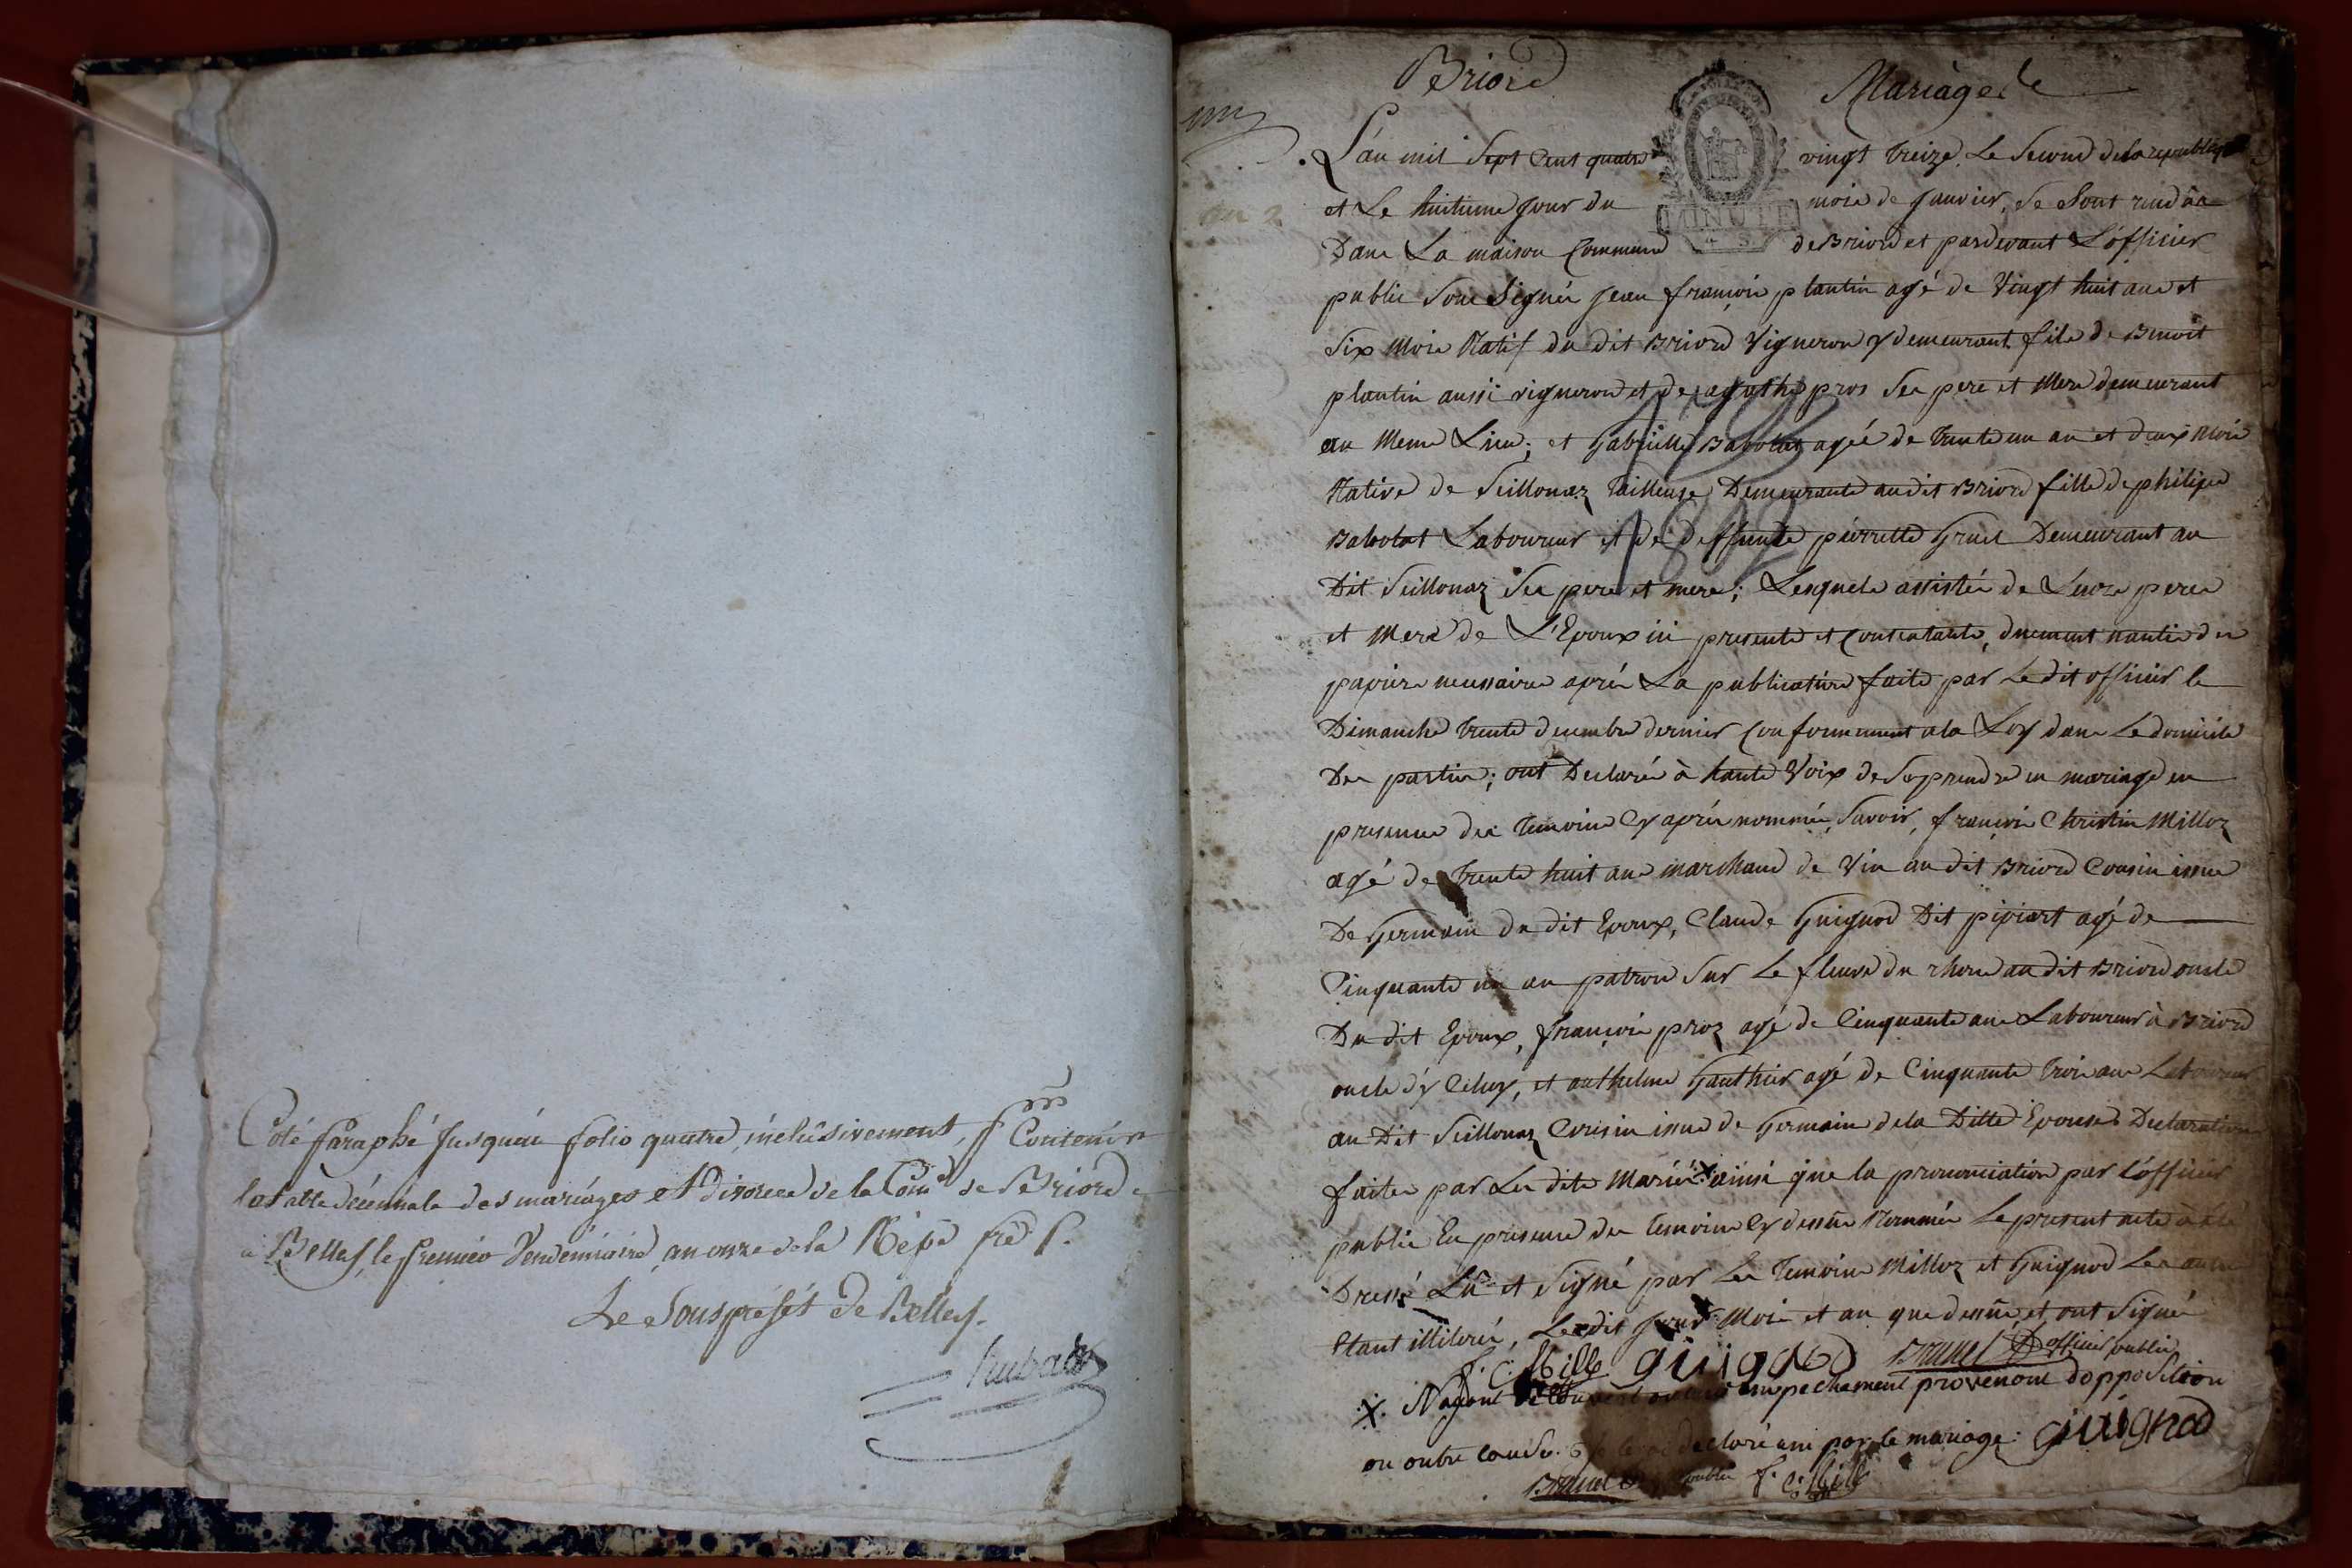 Coté paraphé jusqu'au folio quatre, inclusivement, pr Contenir
la table décennale des mariages et Divorces de la Come de Briord
à Belley, le premier Vendémiaire an onze de la Rép. fse
Le Souspréfet de Belley.
Briord
Mariages de
L'an mil Sept Cent quatre vingt treize Le Second de la republique
et Le huitieme jour du mois de janvier, Se Sont rendus
Dans La maison Commune de Briord et pardevant L'officier
public Sous Signé jean françois plantin agé de Vingt huit ans et
Six Mois Natif du dit Briord Vigneron y demeurant fils de Benoit
plantin aussi vigneron et de agathe pros Ses pere et Mere demeurant
au Meme Lieu; et Gabrielle Babolat agée de trente un an et deux Mois
Native de Seillonaz Tailleuse Demeurante au dit Briord fille de philipe
Babolat Laboureur et de deffunte pierrette Gruel Demeurant au
Dit Seillonaz Ses pere et mere; Lesquels assistés de Leurs peres
et Mere de L'Epoux ici presents et Consentants, duement nantis des
papiers necessaires après La publication faite par Le dit officier le
Dimanche trente decembre dernier Conformement a la Loy dans Le domicile
Des parties; ont Declaré à haute Voix de Se prendre en mariage en
presence des temoins Cy après nommés, Savoir, françois Christin Milloz
agé de trente huit ans marchand de Vin au dit Briord Cousin issue
De Germain du dit Epoux, Claude Guignod Dit agé de
Cinquante un an patron Sur Le fleuve du rhone au dit Briord oncle
Du dit Epoux, françois proz agé de Cinquante ans Laboureur à Briord
oncle d'y Celuy, et anthelme Gauthier agé de Cinquante trois ans Laboureur
au Dit Seillonaz Cousin issue de Germain de la Ditte Epouse Declaration
faite par Les dits Mariés X ainsi que la prononciation par l'officier
public En presence des temoins Cy dessus Nommés Le present acte à été
Dressé Lu et Signé par Les temoins Milloz et Guignod Les autres
Etant illiterés, Les dit jour Mois et an que dessus, et ont Signé
f. C. Milloz guignod Brunel officier public
X. N'ayant empechement provenant d'opposition
ou autre cause declaré unis par le mariage: guignod
Brunel public f. C. Milloz